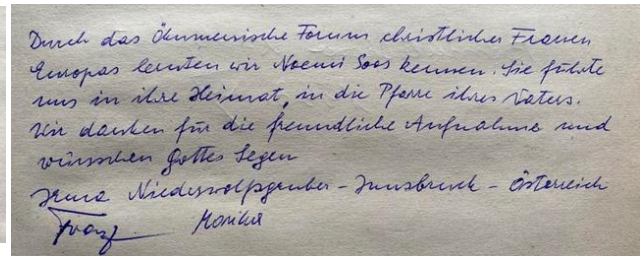 Durch das Ökumenische Forum christlicher Frauen
Europas lernten wir Noemi Soos kennen. Sie führte
uns in ihre Heimat, in die Pfarre ihres Vaters.
Wir danken für die freundliche Aufnahme und
wünschen Gottes Segen
Irma Niederwolfsgruber - Innsbruck - Österreich
Franz Monika